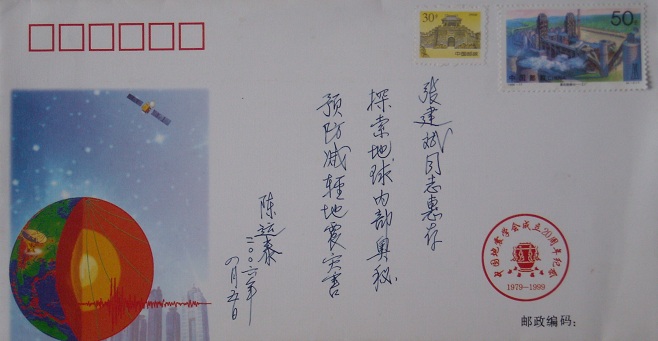 30分
中国邮政
50分
张建斌同志惠存
探索地球内部奥秘
预防减轻地震灾害
陈运泰
二〇〇六年
八月五日
中国地震学会成立20周年纪念
1979-1999
邮政编码：